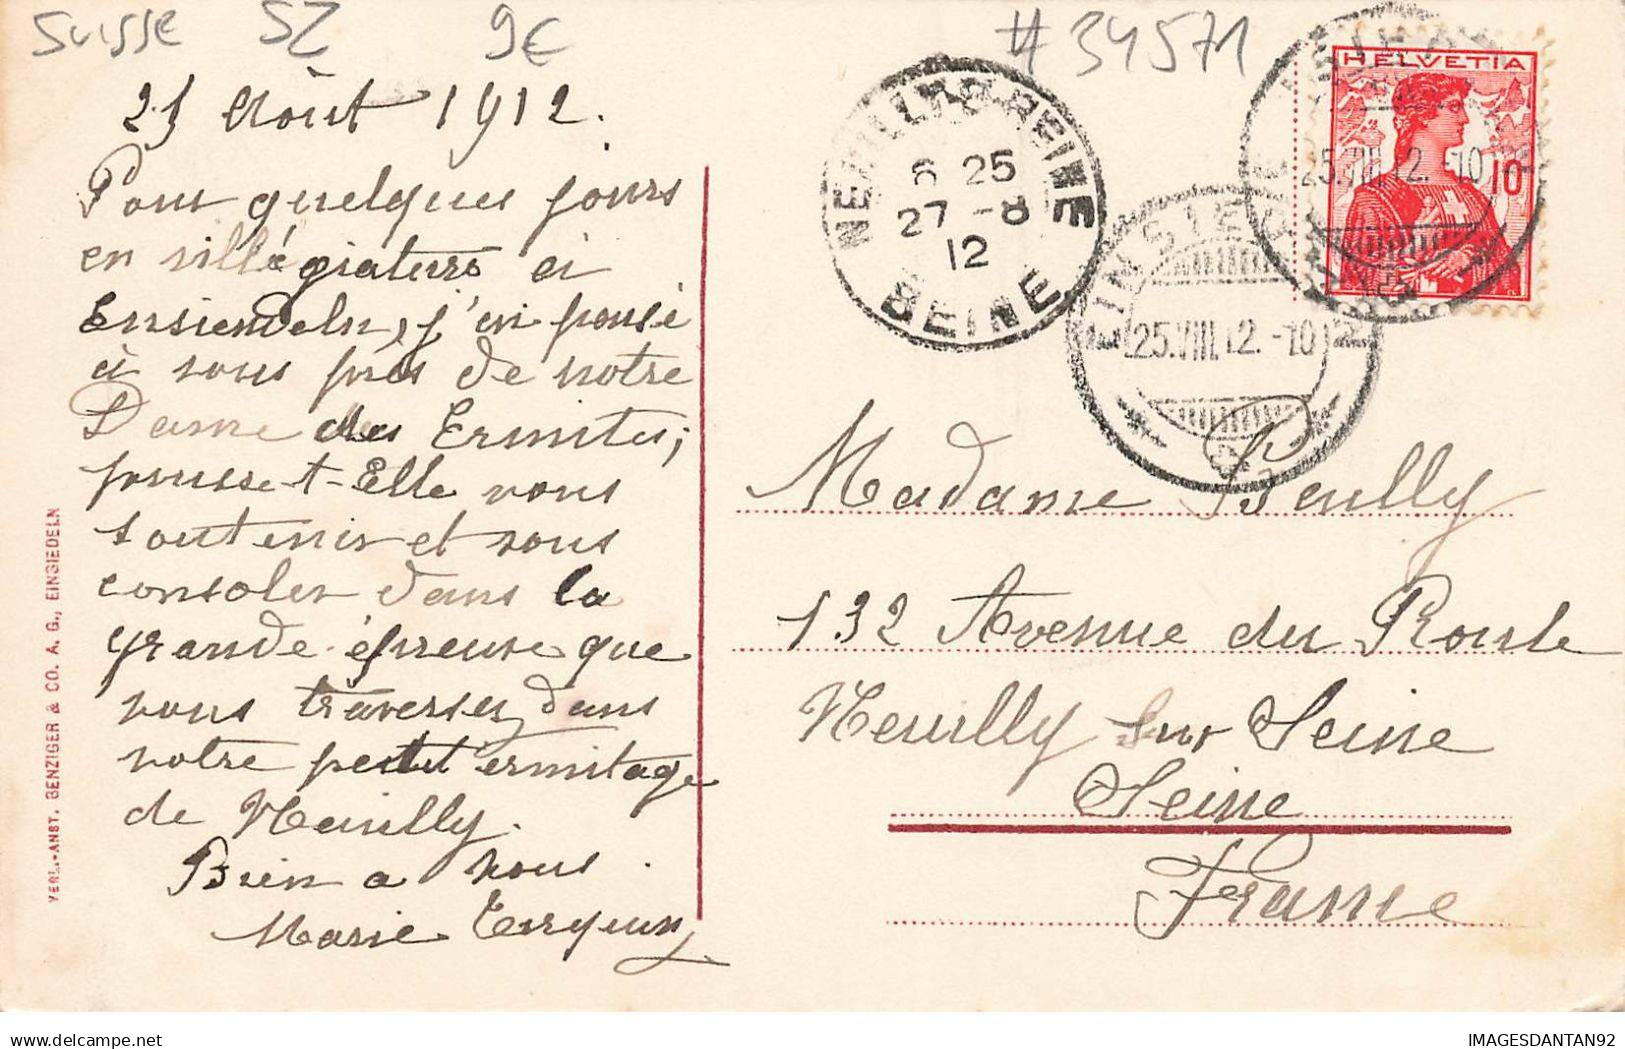 Suisse SZ 9€ #34571
25 Août 1912.
Pour quelques jours
en villégiature à
Ensiendeln, j'ai pensé
à vous près de notre
Dame des Ermites;
puisse-t-Elle vous
soutenir et vous
consoler dans la
grande épreuve que
vous traversez dans
votre petit ermitage
de Neuilly.
Bien a vous.
Marie
VERL.-ANST. BENZIGER & CO. A. G., EINSIEDELN
NEUILLY-S-SEINE
6 25
27 -8
12
SEINE
HELVETIA
10
25.VIII.12.-10
EINSIEDELN
25.VIII.12.-10
Madame
132 Avenue du Roule
Neuilly sur Seine
Seine
France
www.delcampe.net
IMAGESDANTAN92